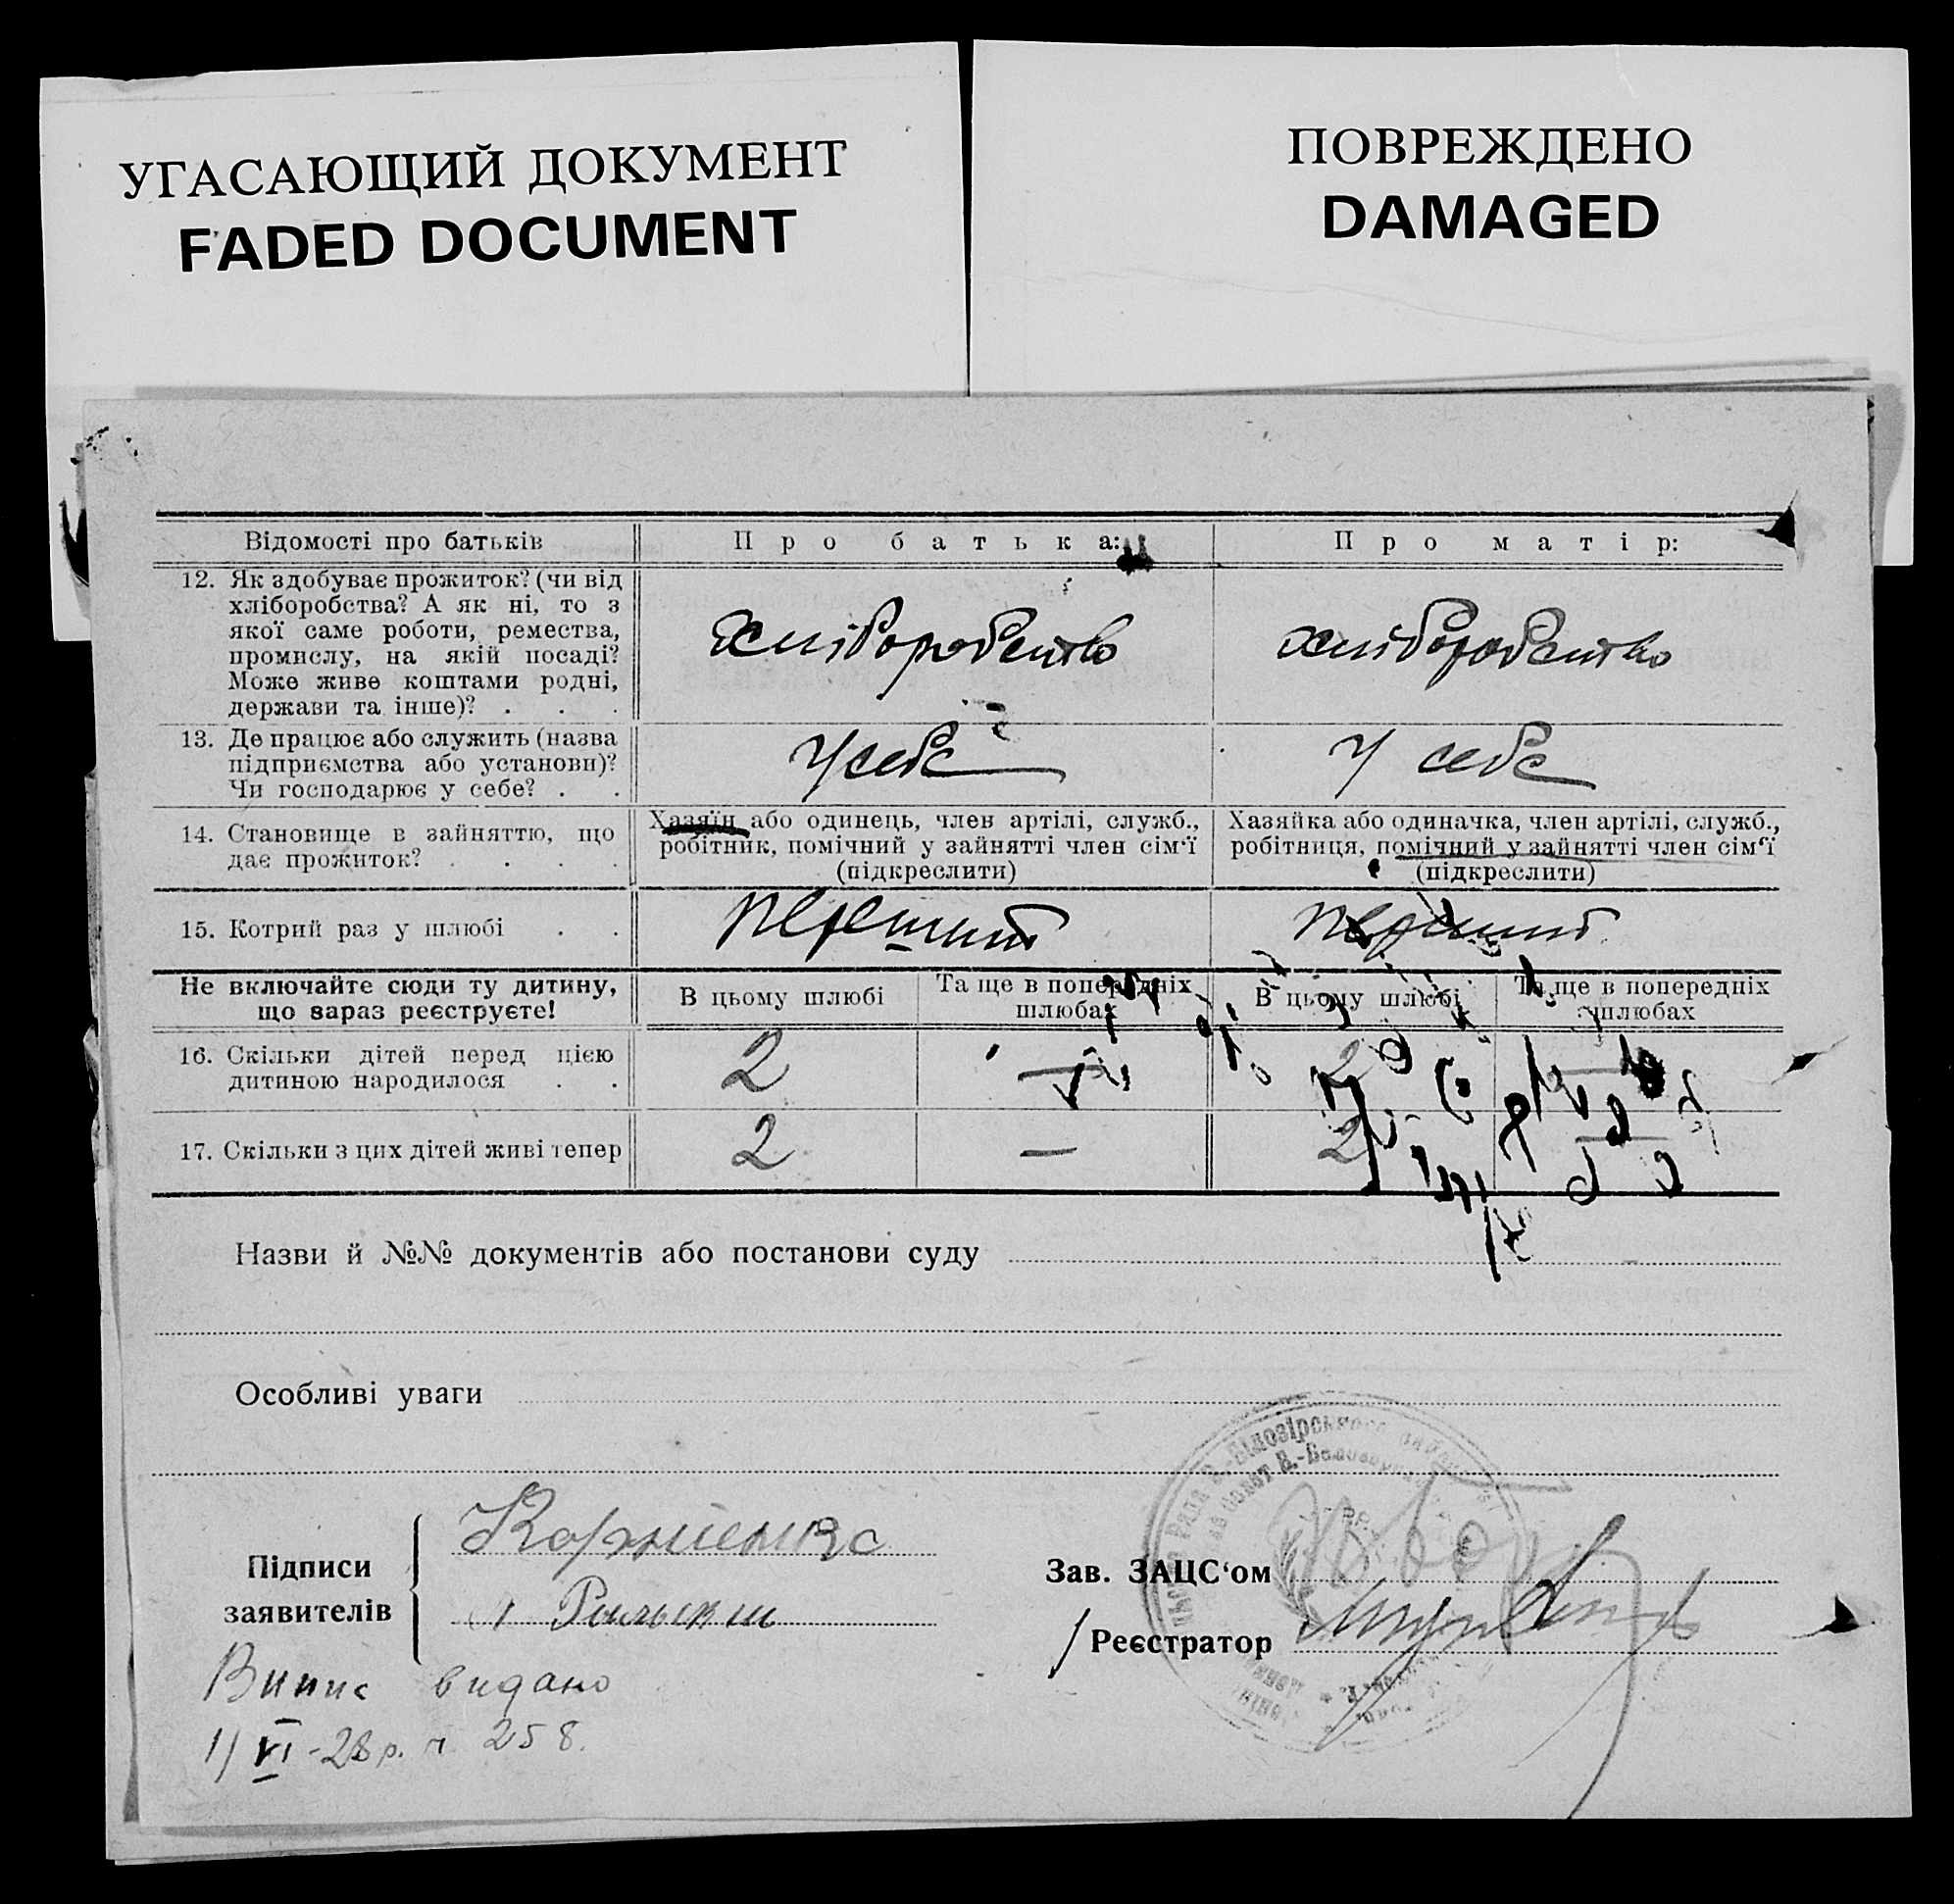 УГАСАЮЩИЙ ДОКУМЕНТ
FADED DOCUMENT
ПОВРЕЖДЕНО
DAMAGED
Відомості про батьків
Про батька:
Про матір:
12. Як здобуває прожиток? (чи від
хліборобства? А як ні, то з
якої саме роботи, ремества,
промислу, на якій посаді?
Може живе коштами родні,
держави та інше)? . . .
хліборобство
хліборобство
13. Де працює або служить (назва
підприємства або установи)?
Чи господарює у себе? . .
У себе
У себе
14. Становище в зайняттю, що
дає прожиток? . . . .
Хазяїн або одинець, член артілі, служб.,
робітник, помічний у зайнятті член сім'ї
(підкреслити)
Хазяйка або одиначка, член артілі, служб.,
робітниця, помічний у зайнятті член сім'ї
(підкреслити)
15. Котрий раз у шлюбі . .
перший
перший
Не включайте сюди ту дитину,
що зараз реєструєте!
В цьому шлюбі
Та ще в попередніх
шлюбах
В цьому шлюбі
Та ще в попередніх
шлюбах
16. Скільки дітей перед цією
дитиною народилося . .
2
—
2
—
17. Скільки з цих дітей живі тепер
2
—
2
—
Назви й №№ документів або постанови суду
Особливі уваги
Підписи
заявителів
Корниенко
Зав. ЗАЦС'ом
Реєстратор
Випис видано
1/VI-28 р. ч. 258.